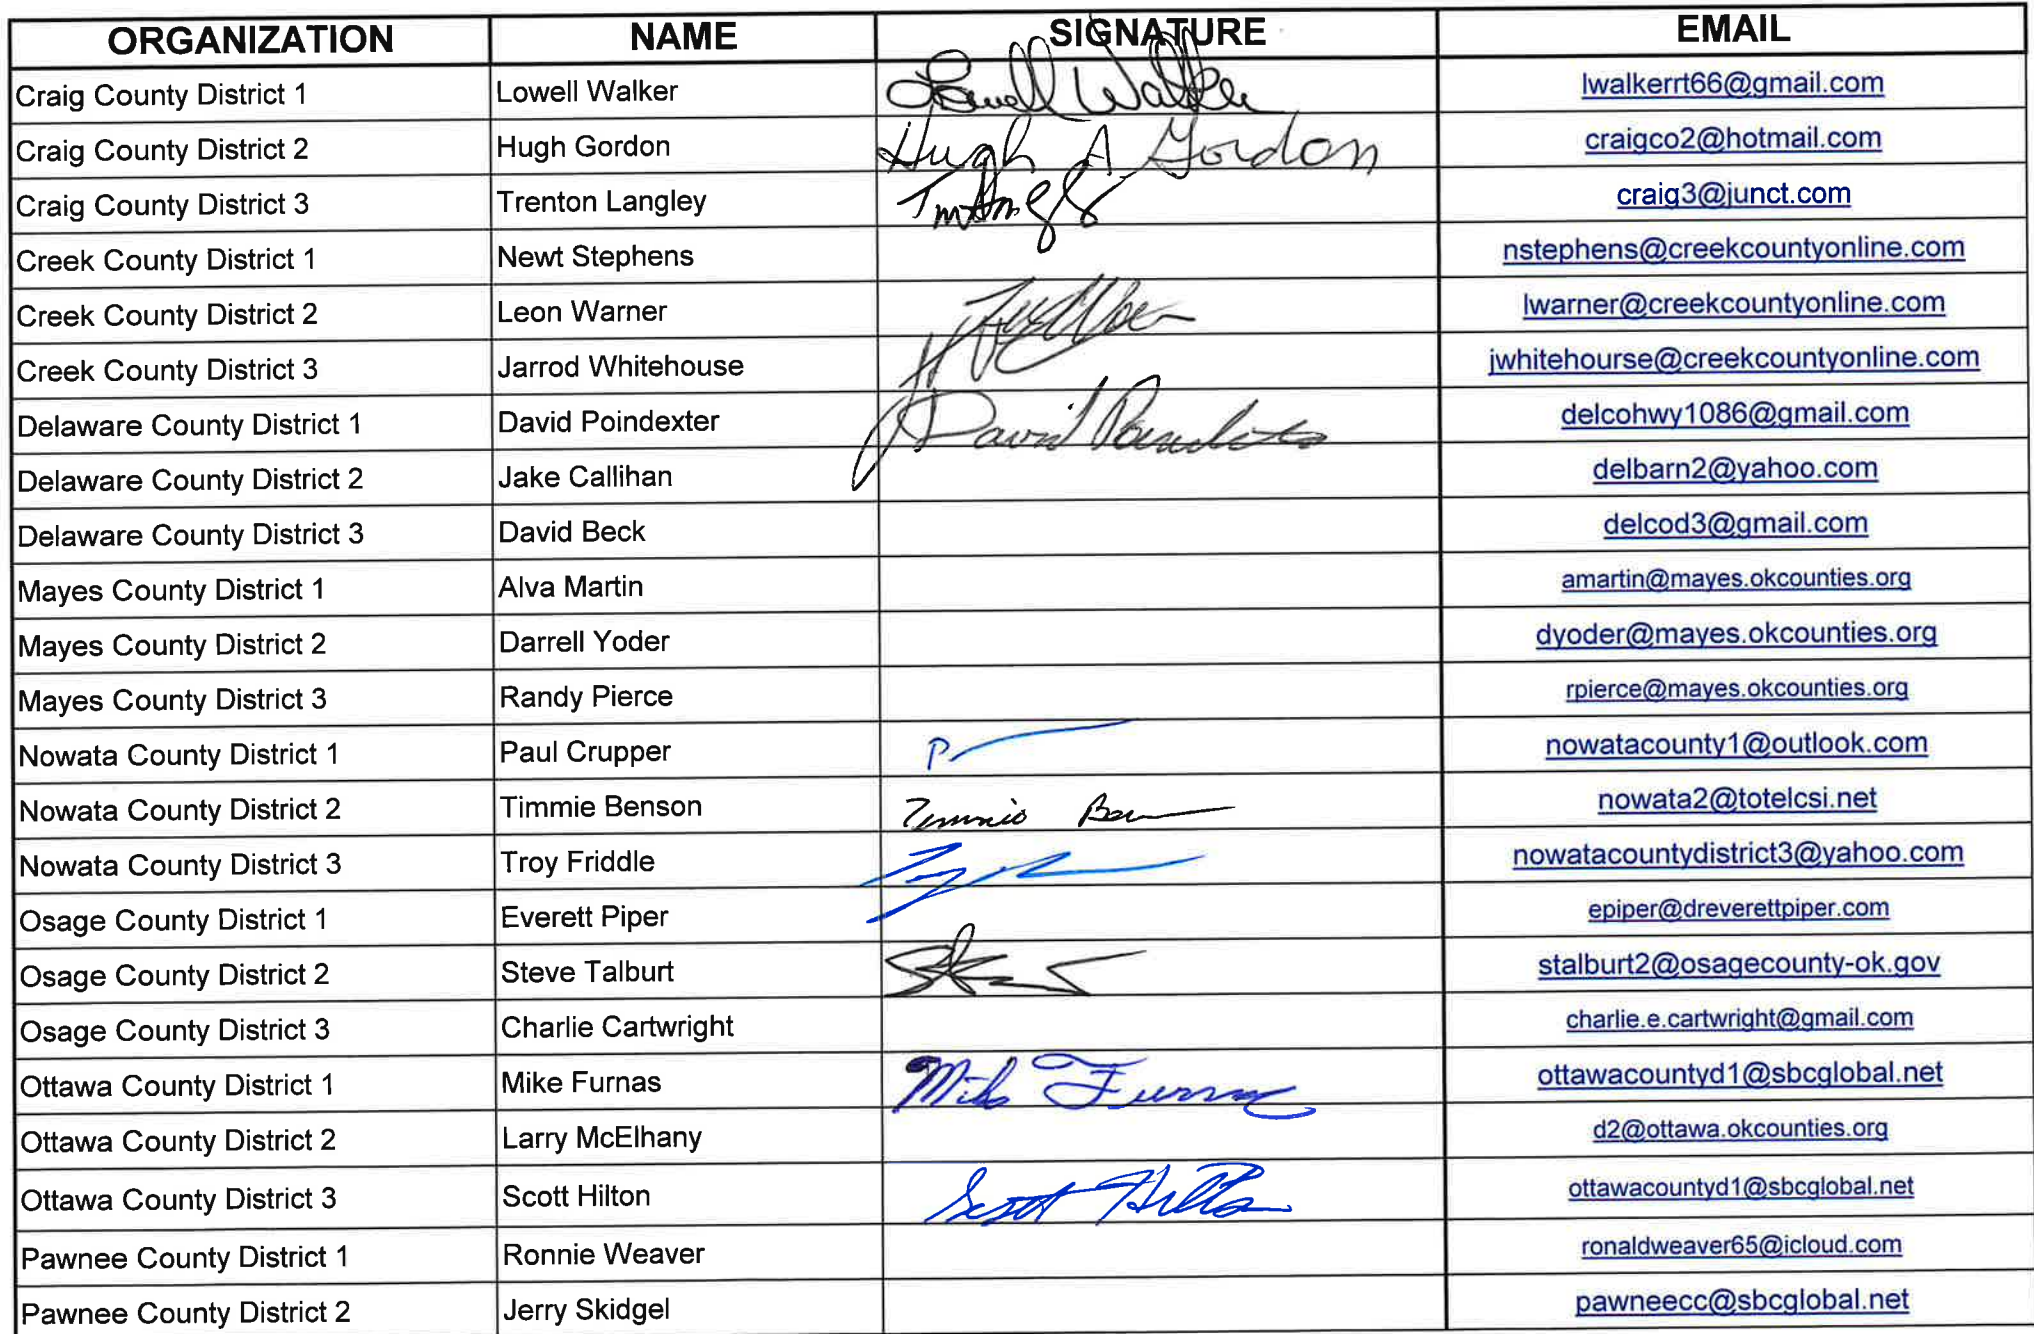 ORGANIZATION NAME SIGNATURE EMAIL
Craig County District 1 Lowell Walker Lowell Walker lwalkerrt66@gmail.com
Craig County District 2 Hugh Gordon Hugh A Gordon craigco2@hotmail.com
Craig County District 3 Trenton Langley craig3@junct.com
Creek County District 1 Newt Stephens nstephens@creekcountyonline.com
Creek County District 2 Leon Warner lwarner@creekcountyonline.com
Creek County District 3 Jarrod Whitehouse jwhitehourse@creekcountyonline.com
Delaware County District 1 David Poindexter David Poindexter delcohwy1086@gmail.com
Delaware County District 2 Jake Callihan delbarn2@yahoo.com
Delaware County District 3 David Beck delcod3@gmail.com
Mayes County District 1 Alva Martin amartin@mayes.okcounties.org
Mayes County District 2 Darrell Yoder dyoder@mayes.okcounties.org
Mayes County District 3 Randy Pierce rpierce@mayes.okcounties.org
Nowata County District 1 Paul Crupper nowatacounty1@outlook.com
Nowata County District 2 Timmie Benson Timmie nowata2@totelcsi.net
Nowata County District 3 Troy Friddle nowatacountydistrict3@yahoo.com
Osage County District 1 Everett Piper epiper@dreverettpiper.com
Osage County District 2 Steve Talburt stalburt2@osagecounty-ok.gov
Osage County District 3 Charlie Cartwright charlie.e.cartwright@gmail.com
Ottawa County District 1 Mike Furnas Mike Furnas ottawacountyd1@sbcglobal.net
Ottawa County District 2 Larry McElhany d2@ottawa.okcounties.org
Ottawa County District 3 Scott Hilton Scott Hilton ottawacountyd1@sbcglobal.net
Pawnee County District 1 Ronnie Weaver ronaldweaver65@icloud.com
Pawnee County District 2 Jerry Skidgel pawneecc@sbcglobal.net